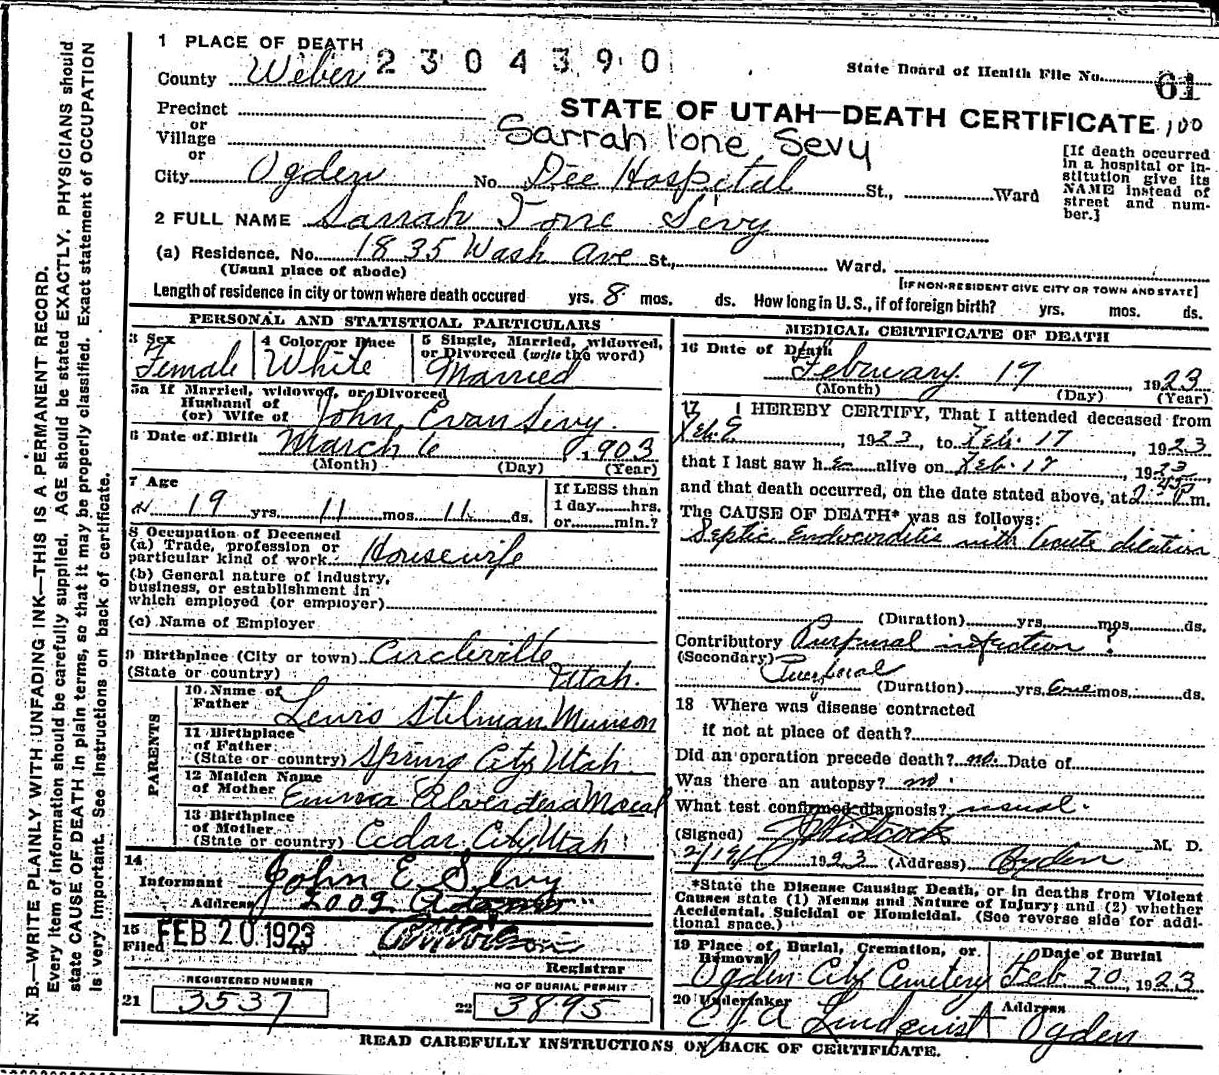 1 PLACE OF DEATH
County Weber 2304390
State Board of Health File No. 61
Precinct
or
Village
or
STATE OF UTAH—DEATH CERTIFICATE 100
Sarrah Ione Sevy
City Ogden No. Dee Hospital St., Ward
[If death occurred in a hospital or institution give its NAME instead of street and number.]
2 FULL NAME Sarrah Ione Sevy
(a) Residence, No. 1835 Wash Ave St., Ward.
(Usual place of abode)
[IF NON-RESIDENT GIVE CITY OR TOWN AND STATE]
Length of residence in city or town where death occured yrs. 8 mos. ds. How long in U. S., if of foreign birth? yrs. mos. ds.
PERSONAL AND STATISTICAL PARTICULARS
3 Sex Female
4 Color or Race White
5 Single, Married, widowed, or Divorced (write the word) Married
5a If Married, widowed, or Divorced
Husband of
(or) Wife of John Evan Sevy.
6 Date of Birth March 6 1903
(Month) (Day) (Year)
7 Age
19 yrs. 11 mos. 11 ds.
If LESS than
1 day hrs.
or min.?
8 Occupation of Deceased
(a) Trade, profession or
particular kind of work Housewife
(b) General nature of industry,
business, or establishment in
which employed (or employer)
(c) Name of Employer
9 Birthplace (City or town) Circleville
(State or country) Utah.
PARENTS
10 Name of
Father Lewis Stilman Munson
11 Birthplace
of Father
(State or country) Spring City Utah.
12 Maiden Name
of Mother Emma
13 Birthplace
of Mother
(State or country) Cedar City Utah
14
Informant John E Sevy
Address
15
Filed FEB 20 1923
Registrar
REGISTERED NUMBER
21 3537
NO OF BURIAL PERMIT
22 3895
MEDICAL CERTIFICATE OF DEATH
16 Date of Death
February 17, 1923
(Month) (Day) (Year)
17 I HEREBY CERTIFY, That I attended deceased from
Feb. 1923, to Feb. 17 1923
that I last saw her alive on Feb. 17, 1923,
and that death occurred, on the date stated above, at m.
The CAUSE OF DEATH* was as follows:
Septic Endocarditis with Acute dilation
(Duration) yrs. mos. ds.
Contributory Purpural infection
(Secondary) Puerperal
(Duration) yrs. One mos. ds.
18 Where was disease contracted
if not at place of death?
Did an operation precede death? no. Date of
Was there an autopsy? no.
What test confirmed diagnosis? usual.
(Signed) M. D.
1923 (Address) Ogden
*State the Disease Causing Death, or in deaths from Violent
Causes state (1) Means and Nature of Injury; and (2) whether
Accidental, Suicidal or Homicidal. (See reverse side for addi-
tional space.)
19 Place of Burial, Cremation, or Removal
Ogden City Cemetery
Date of Burial
Feb 20, 1923
20 Undertaker Address
Lindquist Ogden
READ CAREFULLY INSTRUCTIONS ON BACK OF CERTIFICATE.
N. B.—WRITE PLAINLY WITH UNFADING INK—THIS IS A PERMANENT RECORD.
Every item of information should be carefully supplied. AGE should be stated EXACTLY. PHYSICIANS should
state CAUSE OF DEATH in plain terms, so that it may be properly classified. Exact statement of OCCUPATION
is very important. See instructions on back of certificate.